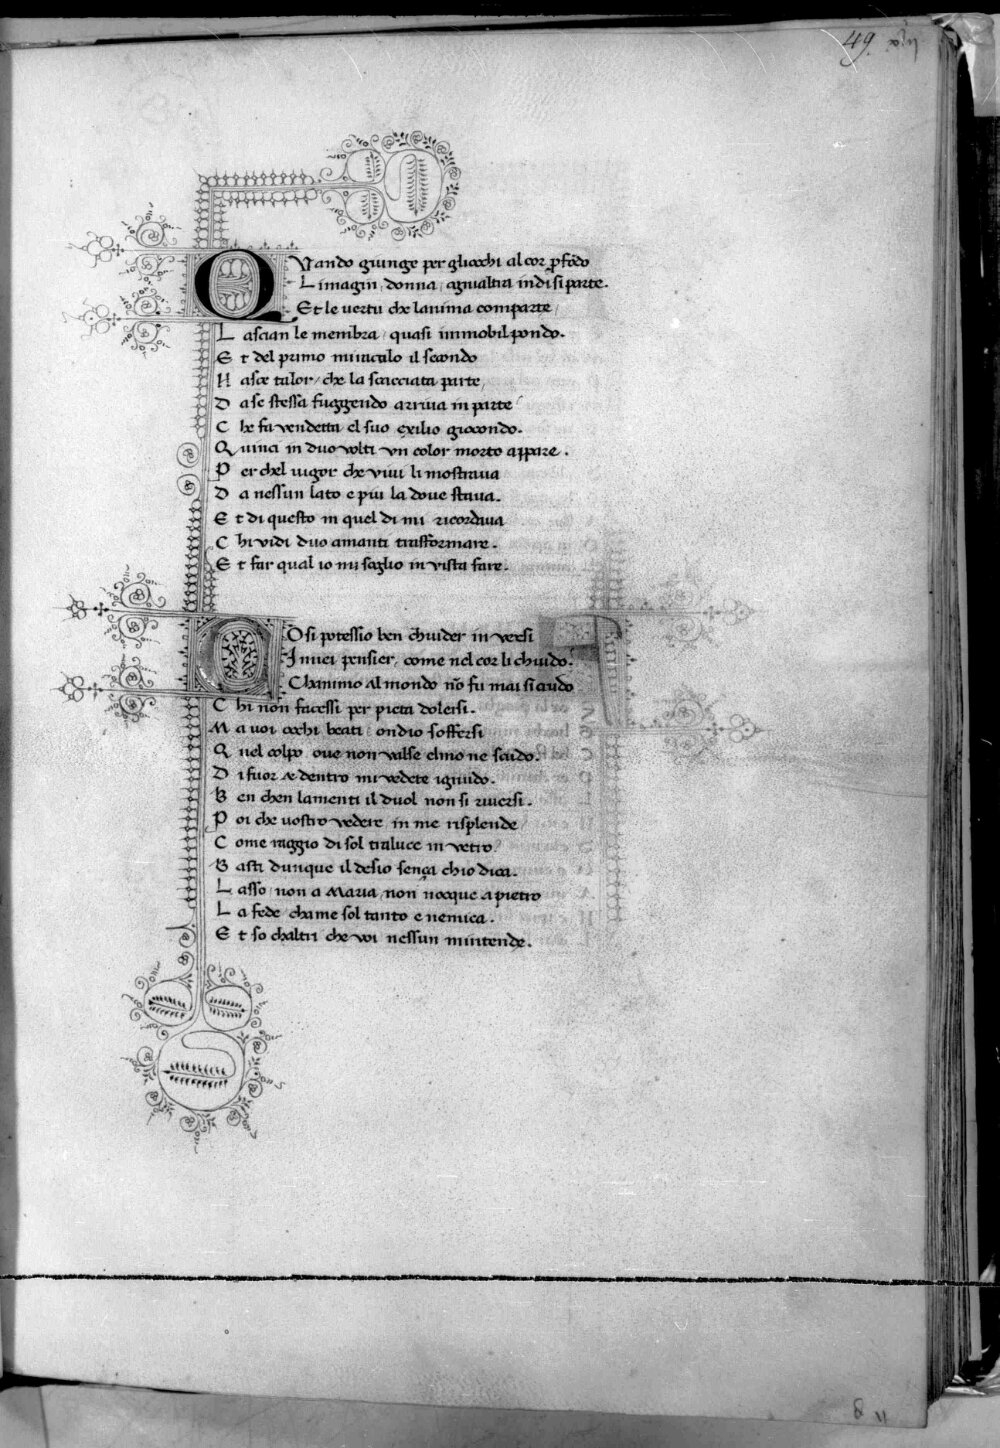 49.
QVando giunge per gliocchi al cor pfõdo
L imagin donna, agnialtra indi si parte.
Et le uertu che lanima comparte,
L ascian le membra, quasi immobil pondo.
E t del primo miraculo il secondo
N asce talor, che la scacciata parte,
D a se stessa fuggendo arriua in parte
C he fa vendetta, el suo exilio giocondo.
Q uinci in duo volti vn color morto appare.
P er chel uigor che viui li mostraua
D a nessun lato e piu la doue staua.
E t di questo in quel di mi ricordaua
C hi vidi duo amanti trasformare.
E t far qual io mi soglio in vista fare.
COsi potessio ben chiuder in versi
I miei pensier, come nel cor li chiudo.
Chanimo al mondo nõ fu mai si crudo
C hi non facessi per pieta dolersi.
M a voi occhi beati ondio soffersi
Q uel colpo oue non valse elmo ne scudo.
D i fuor & dentro mi vedete ignudo.
B en chen lamenti il duol non si riuersi.
P oi che uostro vedere in me risplende
C ome raggio di sol traluce in vetro.
B asti dunque il desio sença chio dica.
L asso, non a Maria, non nocque a pietro
L a fede, chame sol tanto e nemica.
E t so chaltri che voi nessun mintende.